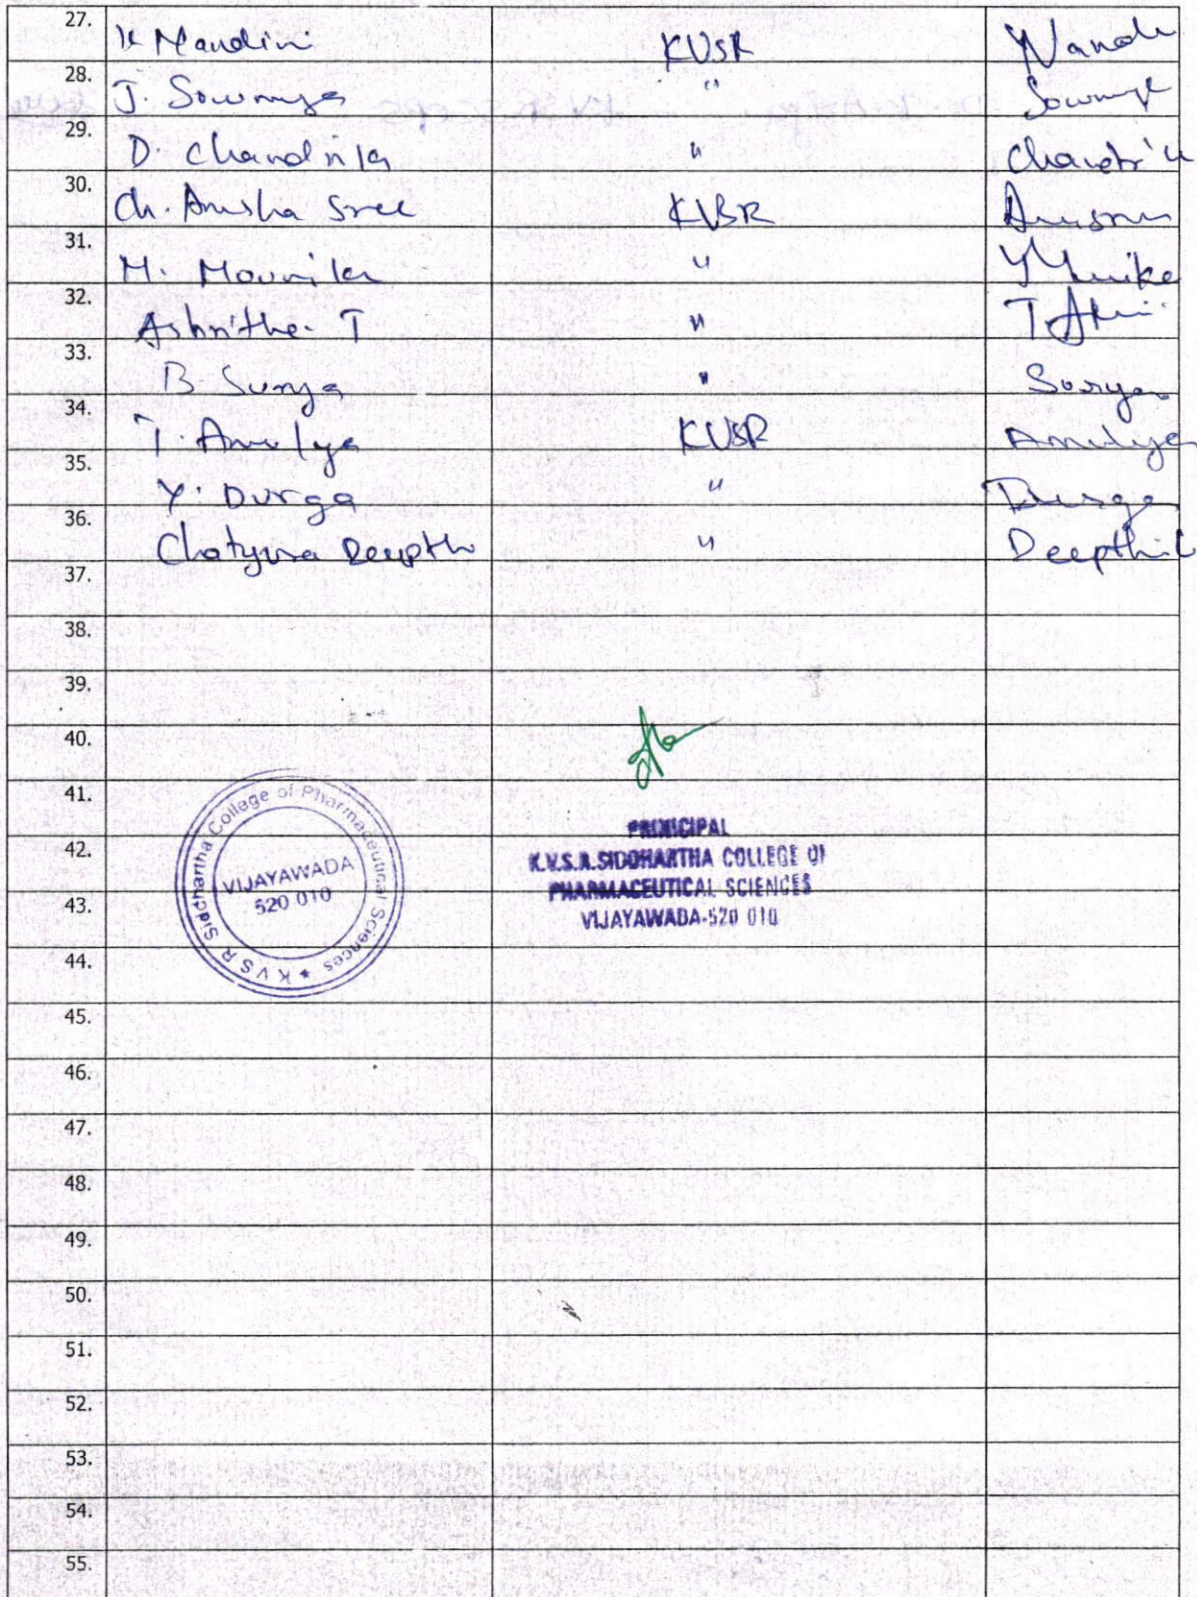 27. K Nandini KVSR Nandi
28. J. Sowmya " Sowmya
29. D. Chandrika " Chandrika
30. Ch. Anusha Sree KVSR
31. M. Mounika "
32. Ashritha. T "
33. B Surya " Surya
34. T. Amulya KVSR Amulya
35. Y. Durga " Durga
36. Deepthi " Deepthi
37.
38.
39.
40.
41.
42.
43.
44.
45.
46.
47.
48.
49.
50.
51.
52.
53.
54.
55.
K V S R Siddhartha College of Pharmaceutical Sciences *
VIJAYAWADA
520 010
PRINCIPAL
K.V.S.R.SIDDHARTHA COLLEGE OF
PHARMACEUTICAL SCIENCES
VIJAYAWADA-520 010